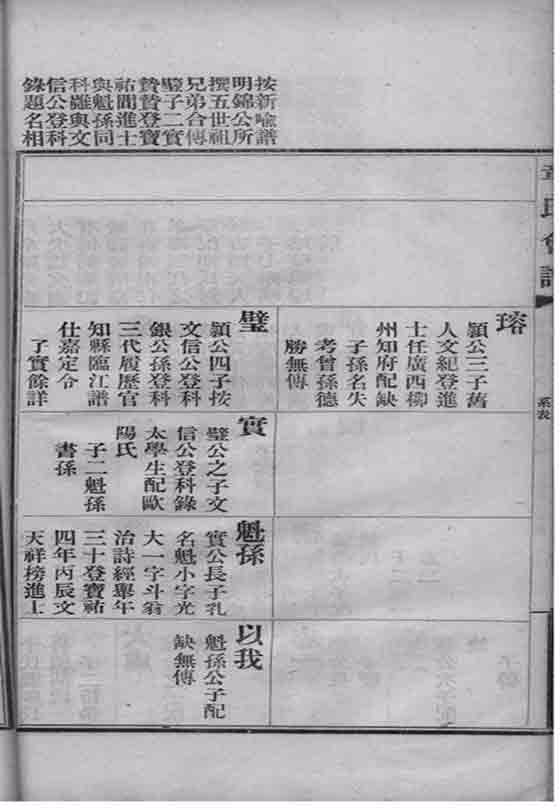 按新喻譜
明錦公所
撰五世祖
兄弟合傳
璧子二實
贊贊登寶
祐間進士
與魁孫同
科雖與文
信公登科
錄題名相
氏會譜
系表
瑢
頴公三子舊
人文紀登進
士任廣西柳
州知府配缺
子孫名失
考曾孫德
勝無傳
璧
頴公四子按
文信公登科
銀公孫登科
三代履歷官
知縣臨江譜
仕嘉定令
了實餘詳
實
璧公之子文
信公登科錄
太學生配歐
陽氏
子二魁孫
書孫
魁孫
實公長子乳
名魁小字光
大一字斗翁
治詩經舉年
三十登寶祐
四年丙辰文
天祥榜進士
以我
魁孫公子配
缺無傳